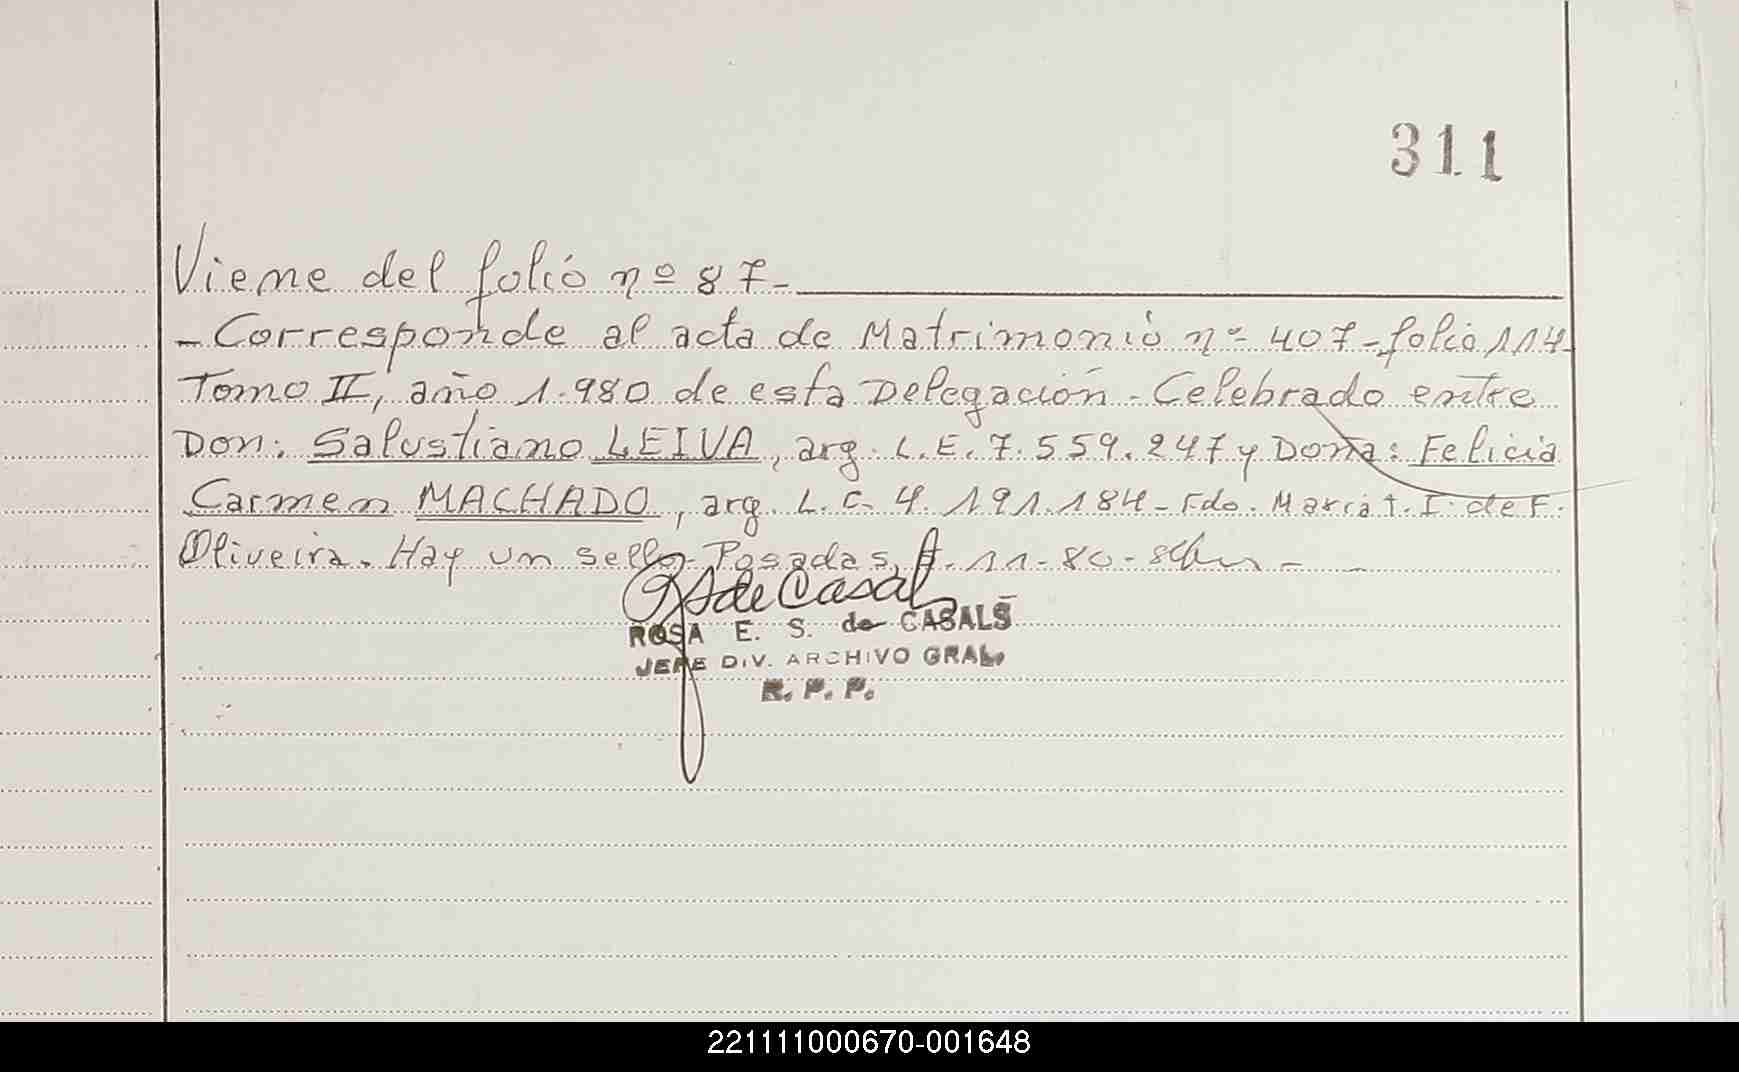 311
Viene del folio nº 87-
- Corresponde al acta de Matrimonio nº 407 - folio 114-
Tomo II, año 1.980 de esta Delegación - Celebrado entre
Don: Salustiano LEIVA, arg. L.E. 7.559.247 y Doña: Felicia
Carmen MACHADO, arg. L.C. 4.191.184 - Fdo. María t. I. de F.
Oliveira. Hay un sello- Posadas, 11-80-
ROSA E. S. de CASALS
JEFE DIV. ARCHIVO GRAL.
R. P. P.
221111000670-001648